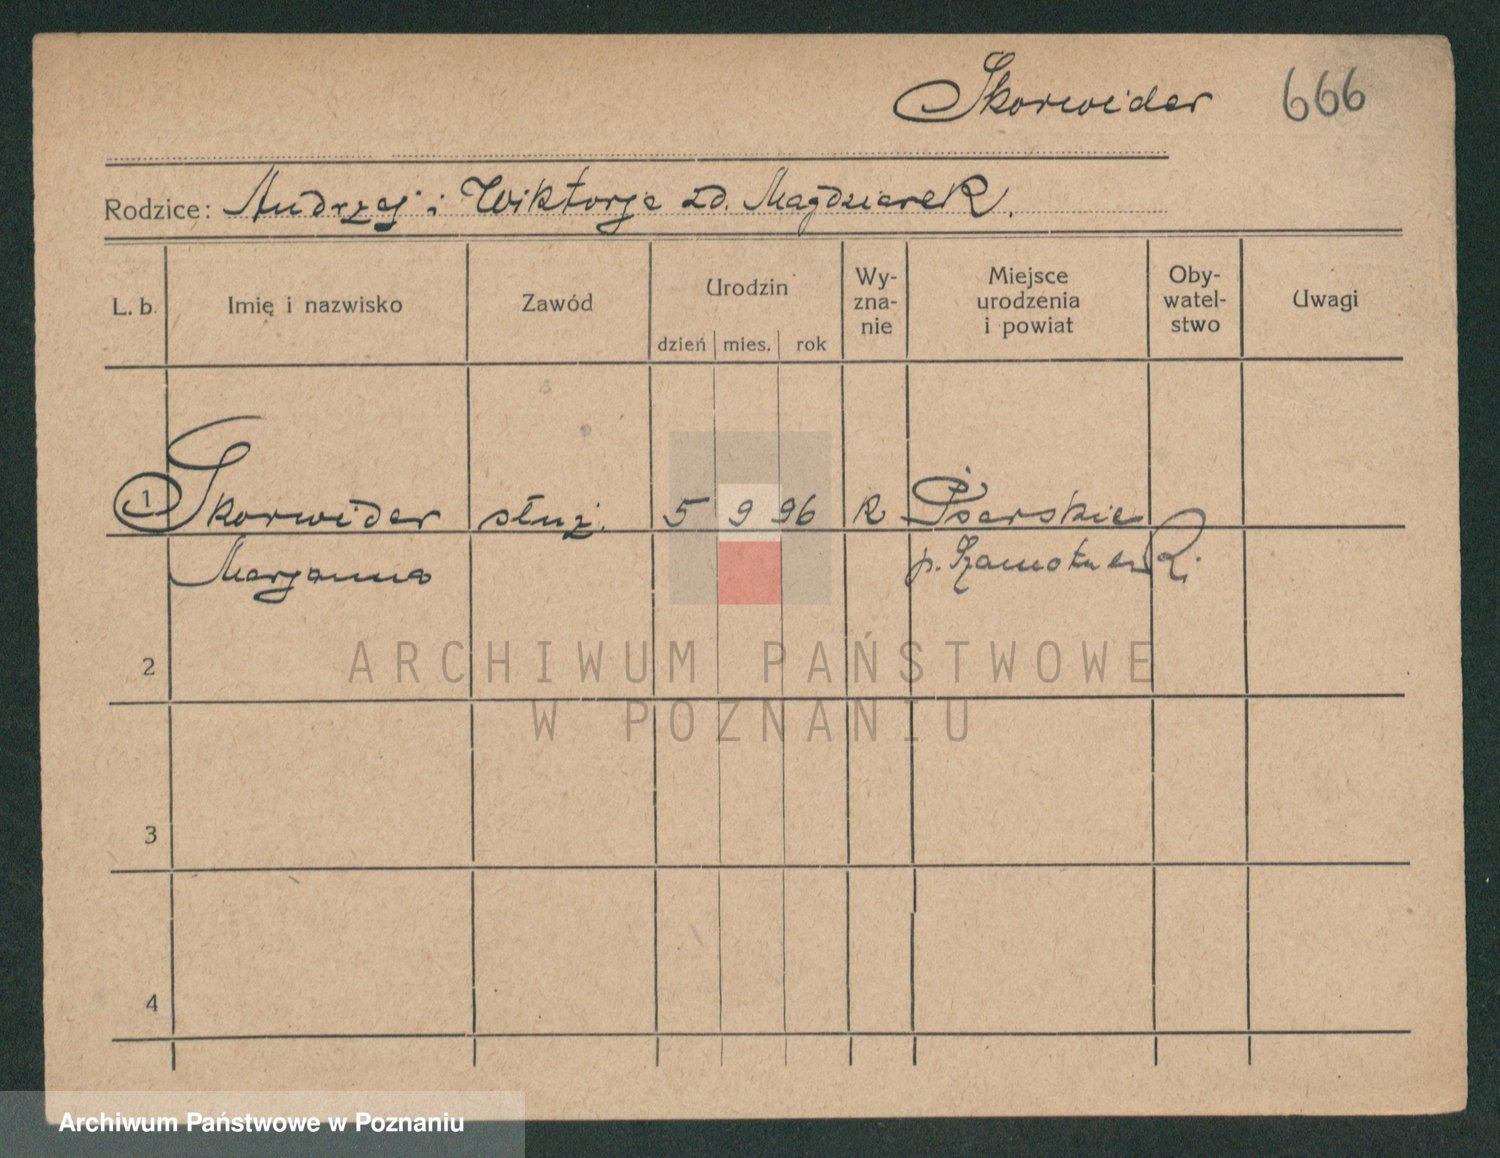 Skorwider 666
Rodzice: Andrzej i Wiktorja zd. Magdziarek.
L. b. Imię i nazwisko Zawód Urodzin Wy-zna-nie Miejsce urodzenia i powiat Oby-watel-stwo Uwagi
dzień mies. rok
1 Skorwider służ. 5 9 96 R Psarskie
Marjanna p. Szamotuły
2
3
4
ARCHIWUM PAŃSTWOWE
W POZNANIU
Archiwum Państwowe w Poznaniu